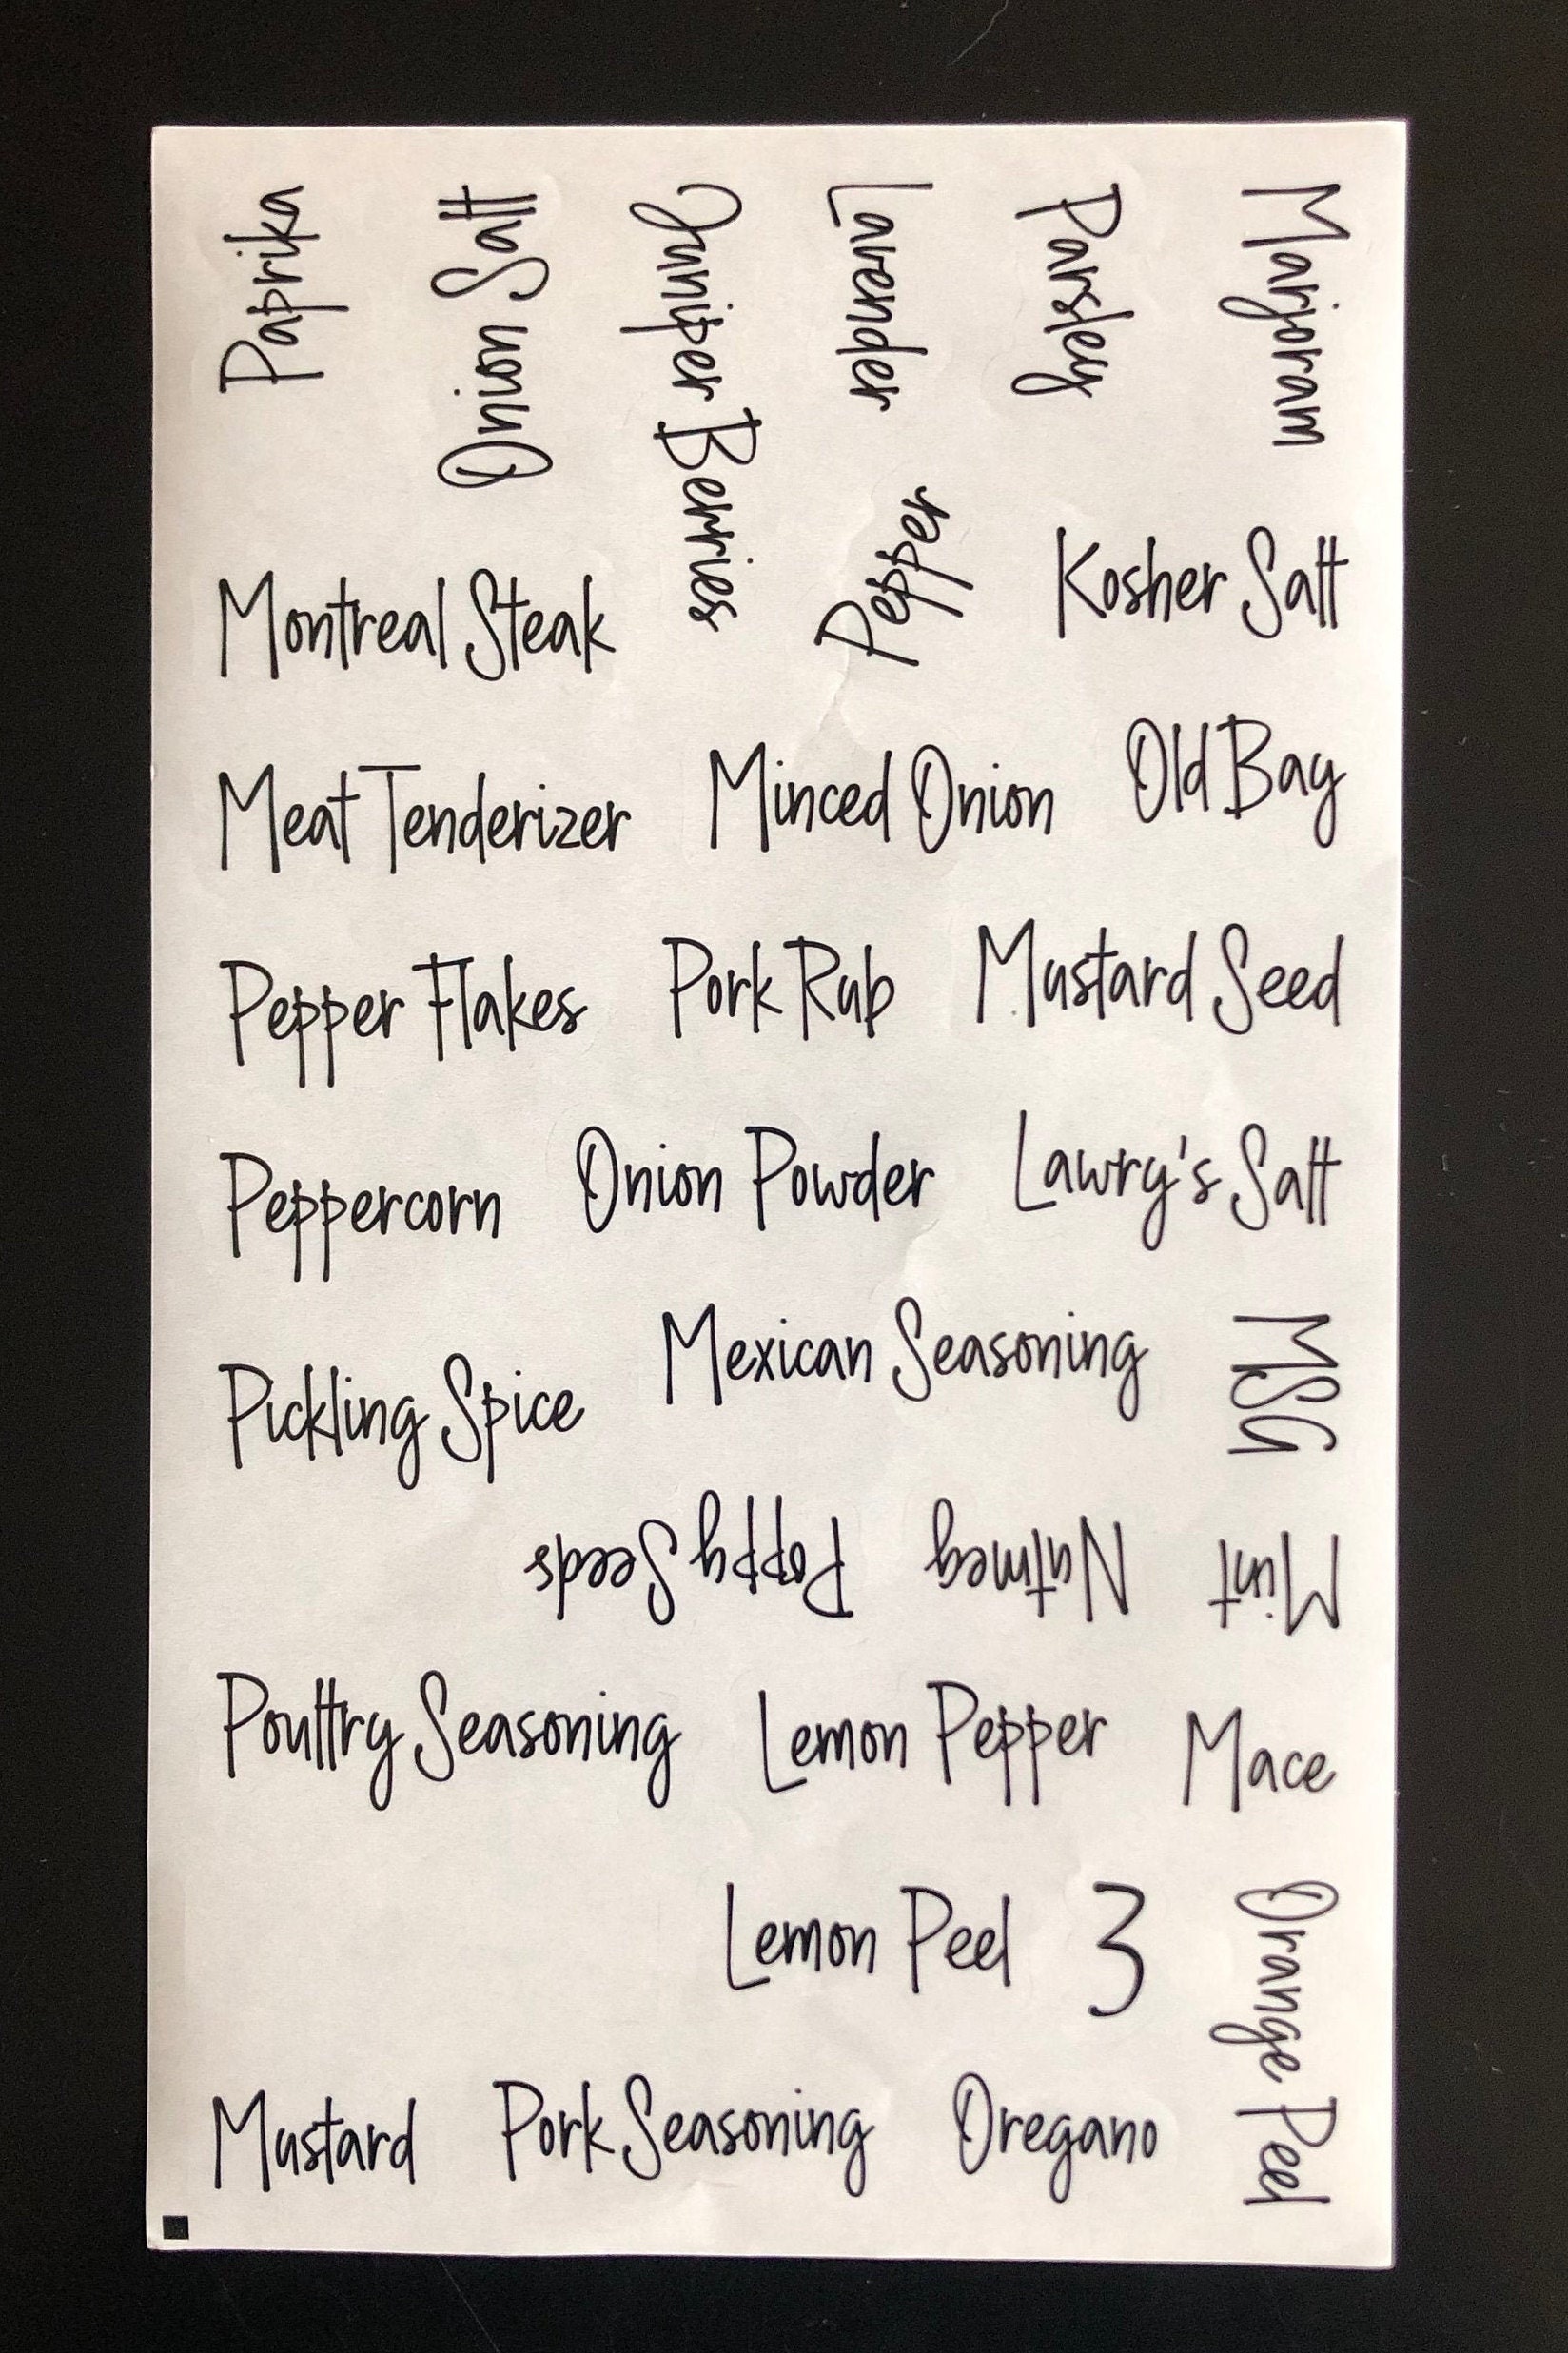 Paprika
Onion Salt
Juniper Berries
Lavender
Parsley
Marjoram
Pepper
Kosher Salt
Montreal Steak
Meat Tenderizer
Minced Onion
Old Bay
Pepper Flakes
Pork Rub
Mustard Seed
Peppercorn
Onion Powder
Lawry's Salt
Pickling Spice
Mexican Seasoning
MSG
Poppy Seeds
Nutmeg
Mint
Poultry Seasoning
Lemon Pepper
Mace
Lemon Peel
3
Orange Peel
Mustard
Pork Seasoning
Oregano